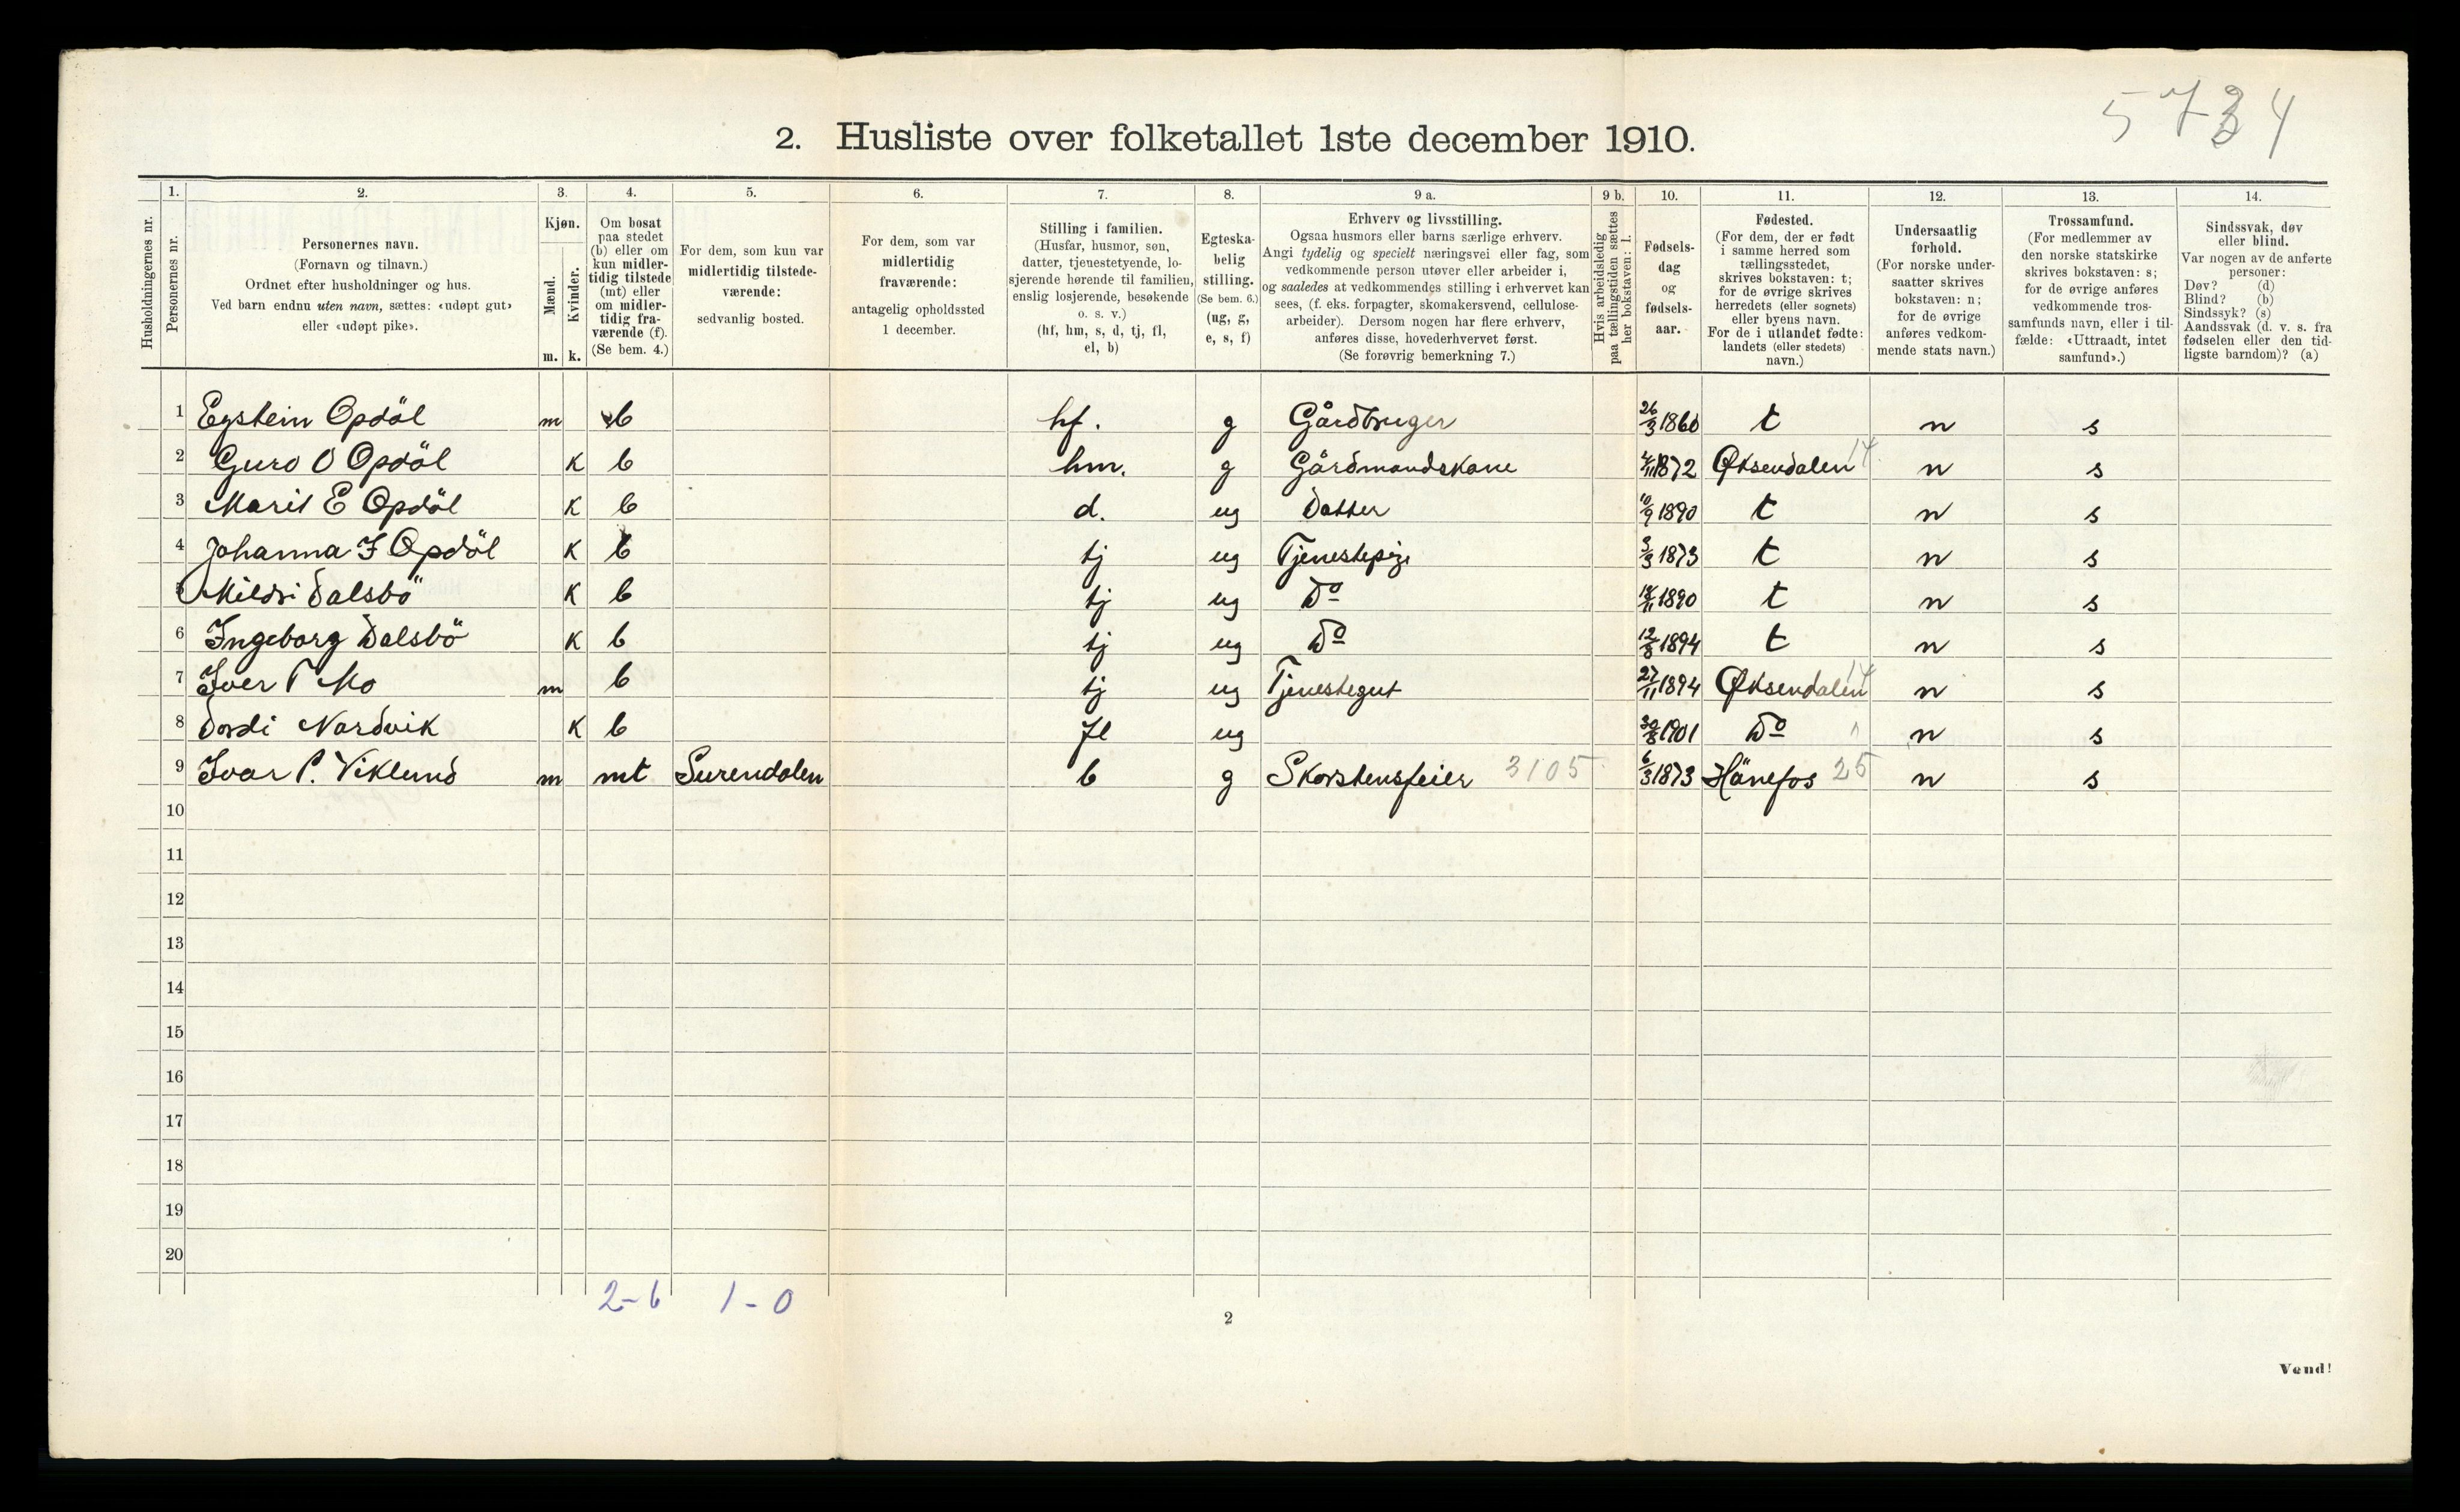 5734
2. Husliste over folketallet 1ste december 1910.
Husholdningernes nr.
1. Personernes nr.
2. Personernes navn.
(Fornavn og tilnavn.)
Ordnet efter husholdninger og hus.
Ved barn endnu uten navn, sættes: «udøpt gut»
eller «udøpt pike».
3. Kjøn.
Mænd. m.
Kvinder. k.
4. Om bosat
paa stedet
(b) eller om
kun midler-
tidig tilstede
(mt) eller
om midler-
tidig fra-
værende (f).
(Se bem. 4.)
5. For dem, som kun var
midlertidig tilstede-
værende:
sedvanlig bosted.
6. For dem, som var
midlertidig
fraværende:
antagelig opholdssted
1 december.
7. Stilling i familien.
(Husfar, husmor, søn,
datter, tjenestetyende, lo-
sjerende hørende til familien,
enslig losjerende, besøkende
o. s. v.)
(hf, hm, s, d, tj, fl,
el, b)
8. Egteska-
belig
stilling.
(Se bem. 6.)
(ug, g,
e, s, f)
9 a. Erhverv og livsstilling.
Ogsaa husmors eller barns særlige erhverv.
Angi tydelig og specielt næringsvei eller fag, som
vedkommende person utøver eller arbeider i,
og saaledes at vedkommendes stilling i erhvervet kan
sees, (f. eks. forpagter, skomakersvend, cellulose-
arbeider). Dersom nogen har flere erhverv,
anføres disse, hovederhvervet først.
(Se forøvrig bemerkning 7.)
9 b. Hvis arbeidsledig
paa tællingstiden sættes
her bokstaven: l.
10. Fødsels-
dag
og
fødsels-
aar.
11. Fødested.
(For dem, der er født
i samme herred som
tællingsstedet,
skrives bokstaven: t;
for de øvrige skrives
herredets (eller sognets)
eller byens navn.
For de i utlandet fødte:
landets (eller stedets)
navn.)
12. Undersaatlig
forhold.
(For norske under-
saatter skrives
bokstaven: n;
for de øvrige
anføres vedkom-
mende stats navn.)
13. Trossamfund.
(For medlemmer av
den norske statskirke
skrives bokstaven: s;
for de øvrige anføres
vedkommende tros-
samfunds navn, eller i til-
fælde: «Uttraadt, intet
samfund».)
14. Sindssvak, døv
eller blind.
Var nogen av de anførte
personer:
Døv? (d)
Blind? (b)
Sindssyk? (s)
Aandssvak (d. v. s. fra
fødselen eller den tid-
ligste barndom)? (a)
1 Eystein Opdöl m b hf. g Gårdbruger 26/3 1860 t n s
2 Guro O Opdöl K b hm. g Gårdmandskone 4/11 1872 Øksendalen 14 n s
3 Marit E Opdöl K b d. ug Datter 10/9 1890 t n s
4 Johanna I Opdöl K b tj ug Tjenestepige 3/3 1873 t n s
5 Mildri Dalsbö K b tj ug Do 18/11 1890 t n s
6 Ingeborg Dalsbö K b tj ug Do 12/8 1894 t n s
7 Iver T Mo m b tj ug Tjenestegut 27/11 1894 Øksendalen 14 n s
8 Dordi Nordvik K b fl ug 30/8 1901 Do n s
9 Ivar P. Viklund m mt Surendalen b g Skorstensfeier 3105 6/3 1873 Hönefos 25 n s
10
11
12
13
14
15
16
17
18
19
20
2-6 1-0
2
Vend!